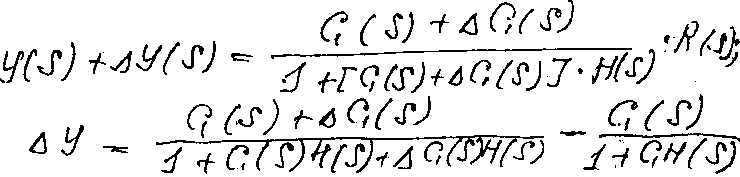 Y(S) + ΔY(S) = \frac{G(S) + ΔG(S)}{1 + [G(S) + ΔG(S)] · H(S)} · R(S);
ΔY = \frac{G(S) + ΔG(S)}{1 + G(S)H(S) + ΔG(S)H(S)} − \frac{G(S)}{1 + GH(S)}